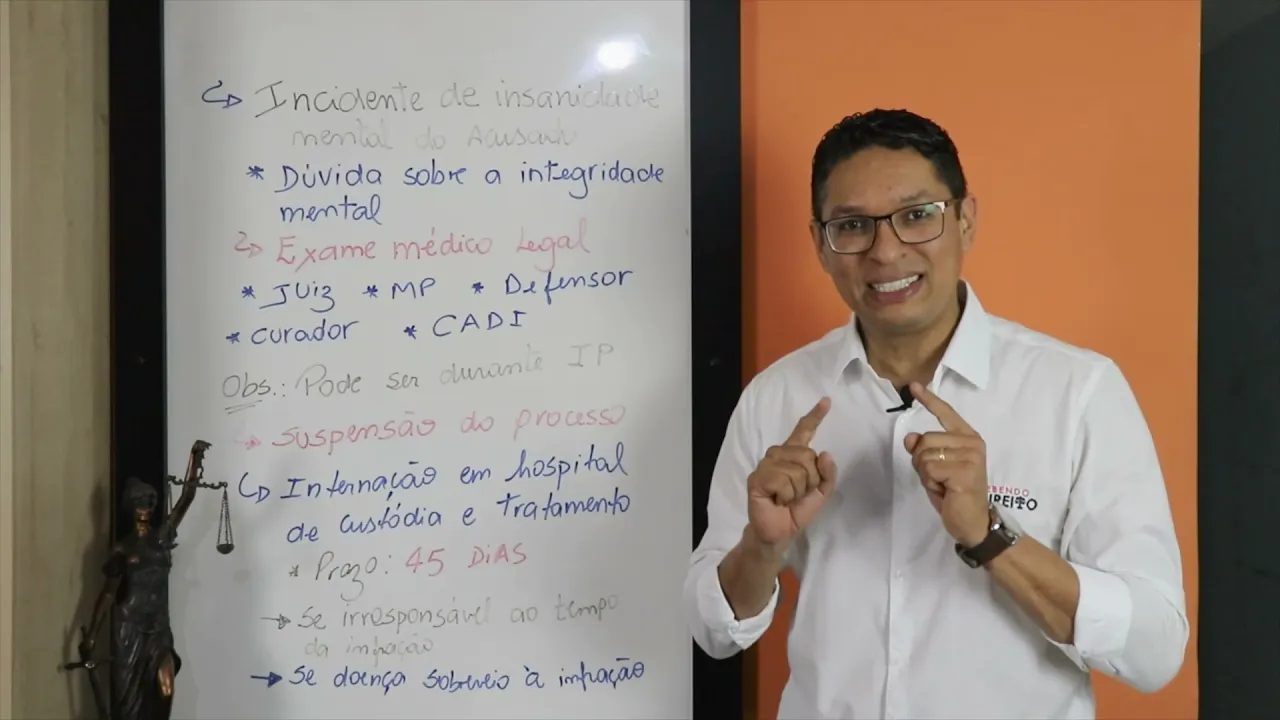 ↳ Incidente de insanidade
mental do Acusado
* Dúvida sobre a integridade
mental
↳ Exame médico Legal
* Juiz * MP * Defensor
* curador * CADI
Obs.: Pode ser durante IP
↳ suspensão do processo
↳ Internação em hospital
de custódia e tratamento
* Prazo: 45 DiAS
→ Se irresponsável ao tempo
da infração
→ Se doença sobreveio à infração
BENDO
IREITO